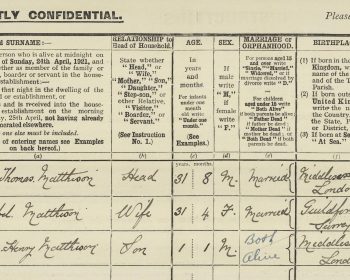 TLY CONFIDENTIAL.
Please
SURNAME :—
erson who is alive at midnight on
of Sunday, 24th April, 1921, and
ither as member of the family or
boarder or servant in the house-
establishment :—
that night in the dwelling of the
or establishment, or
and is received into the house-
establishment on the morning
25th April, not having already
erated elsewhere.
one else must be included.
of entering names see Examples
on back hereof.)
RELATIONSHIP to
Head of Household.
State whether
"Head," or
"Wife,"
"Mother," "Son,"
"Daughter,"
"Step-son,"
or other
Relative,
"Visitor,"
"Boarder," or
"Servant."
(See Instruction
No. 1.)
AGE.
State
in
years
and
months.
For infants
under one
month old
write
"Under one
month."
(See
Examples.)
SEX.
If
male
write
"M."
If
female
write
"F."
MARRIAGE or
ORPHANHOOD.
For persons
aged 15 years
and over write
"Single," "Married,"
"Widowed," or if
marriage dissolved by
divorce write "D."
For children
aged under 15 write
"Both Alive"
if both parents alive
"Father Dead"
if father dead
"Mother Dead" if
mother dead
"Both Dead" if both
parents dead.
BIRTHPLA
(1) If born in the
Kingdom, w
(2) If born out
United King
write the
of the Coun
the Sta
and Pla
or District.
(3) If born at Se
"At Sea."
(a) (b) (c) (d) (e) (f)
years. months.
Thomas Matthison Head 31 8 M. Married Middlesex
London
Matthison Wife 31 4 F. Married Guildford
Surrey
Henry Matthison Son 1 1 M Both
Alive Middlesex
Lon